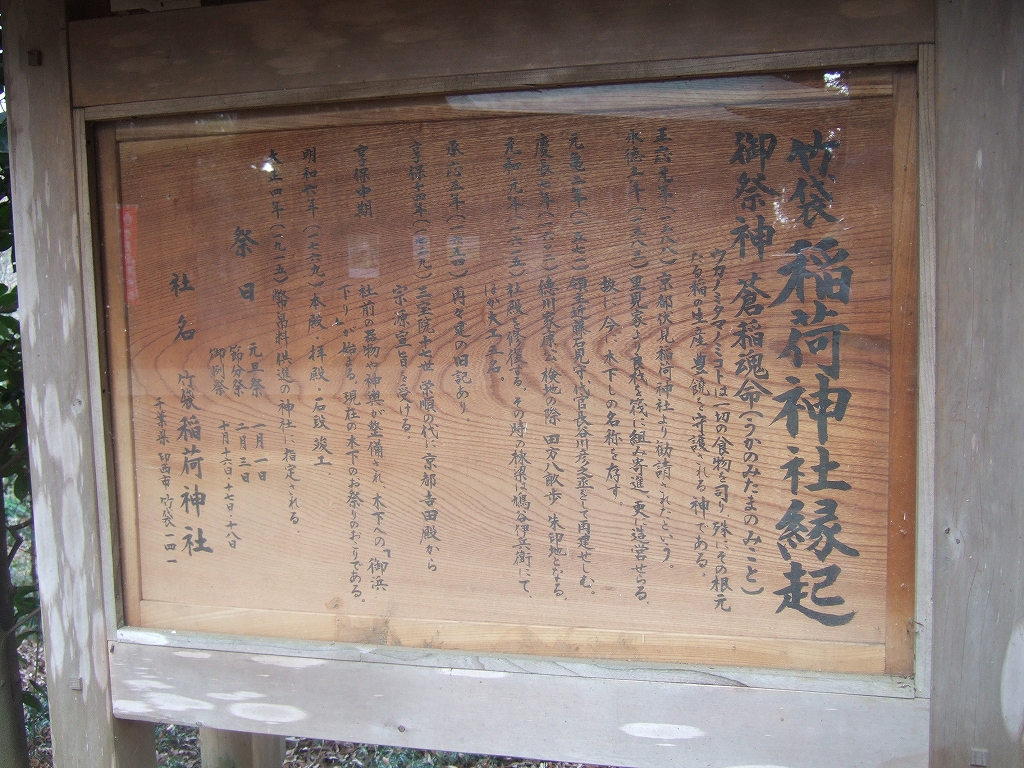 竹袋稲荷神社縁起
御祭神 蒼稲魂命(うかのみたまのみこと)
ウカノミタマノミコトは一切の食物を司り殊にその根元
たる稲の生産豊饒を守護される神である。
正応元年(一二八八)京都伏見稲荷神社より勧請されたという。
永徳三年(一三八三)里見家より良材を筏に組み寄進、更に造営せらる。
故に今に木下の名称を存す。
元亀二年(一五七一)領主近藤石見守、代官長谷川 をして再建せしむ。
慶長七年(一六〇二)徳川家康公検地の際 田方八畝歩 朱印地となる。
元和元年(一六一五)社殿を修復する。その時の棟梁は 谷伊兵衛にて、
ほか大工三名。
承応三年(一六五四)再々建の旧記あり。
享保十四年(一七二九)三宝院十七世 栄順の代に京都吉田殿から
宗源宣旨を受ける。
享保中期 社前の器物や神輿が整備され 木下への『御浜
下り』が始まる。現在の木下のお祭りのおこりである。
明和六年(一七六九)本殿・拝殿・石段竣工
大正四年(一九一五)幣帛料供進の神社に指定される。
祭日
元旦祭 一月一日
節分祭 二月三日
御例祭 十月十六日十七日十八日
社名 竹袋稲荷神社
千葉県 印西市 竹袋一四一